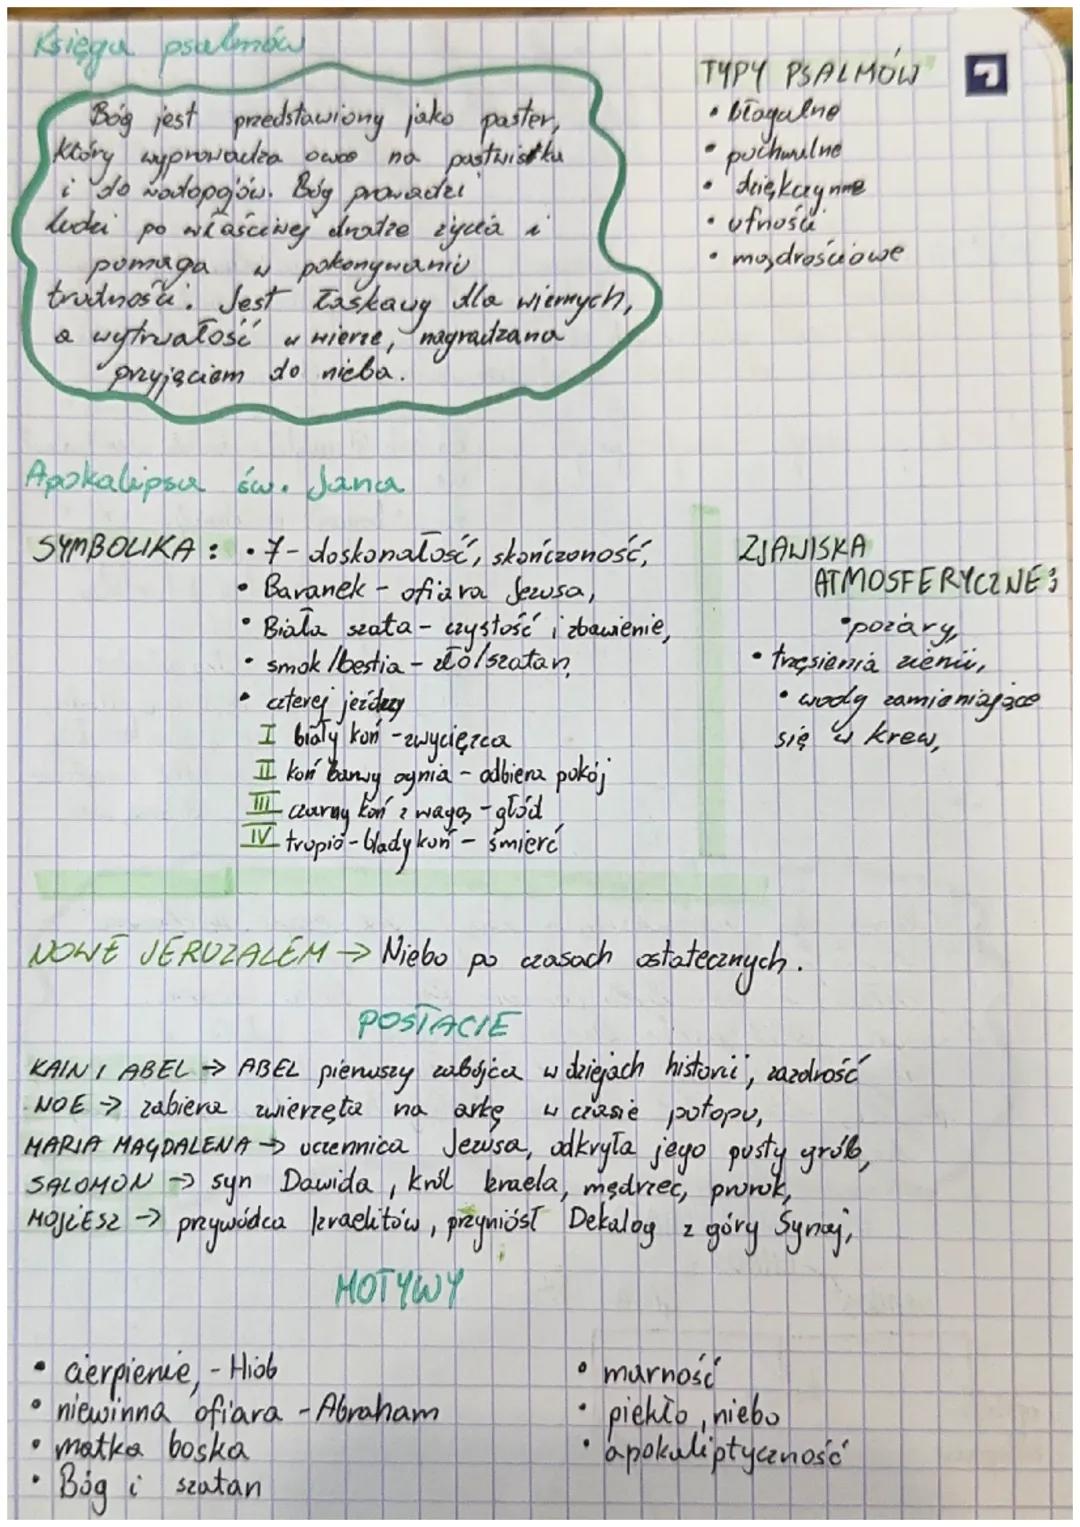 Księga psalmów
Bóg jest przedstawiony jako paster,
który wyprowadza owce na pastwiska
i do wodopojów. Bóg prowadzi
ludzi po właściwej drodze życia i
pomaga w pokonywaniu
trudności. Jest łaskawy dla wiernych,
a wytrwałość w wierze, nagradzana
przyjęciem do nieba.
TYPY PSALMÓW
• błagalne
• pochwalne
• dziękczynne
• ufności
• mądrościowe
Apokalipsa św. Jana
SYMBOLIKA: • 7 - doskonałość, skończoność,
• Baranek - ofiara Jezusa,
• Biała szata - czystość i zbawienie,
• smok/bestia - zło/szatan,
• czterej jeźdźcy
I biały koń - zwycięzca
II koń barwy ognia - odbiera pokój
III czarny koń z wagą - głód
IV trupio-blady koń - śmierć
ZJAWISKA
ATMOSFERYCZNE:
• pożary,
• trzęsienia ziemi,
• wody zamieniające
się w krew,
NOWE JERUZALEM → Niebo po czasach ostatecznych.
POSTACIE
KAIN I ABEL → ABEL pierwszy zabójca w dziejach historii, zazdrość
NOE → zabiera zwierzęta na arkę w czasie potopu,
MARIA MAGDALENA → uczennica Jezusa, odkryła jego pusty grób,
SALOMON → syn Dawida, król Izraela, mędrzec, prorok,
MOJŻESZ → przywódca Izraelitów, przyniósł Dekalog z góry Synaj,
MOTYWY
• cierpienie, - Hiob
• niewinna ofiara - Abraham
• matka boska
• Bóg i szatan
• marność
• piekło, niebo
• apokaliptyczność